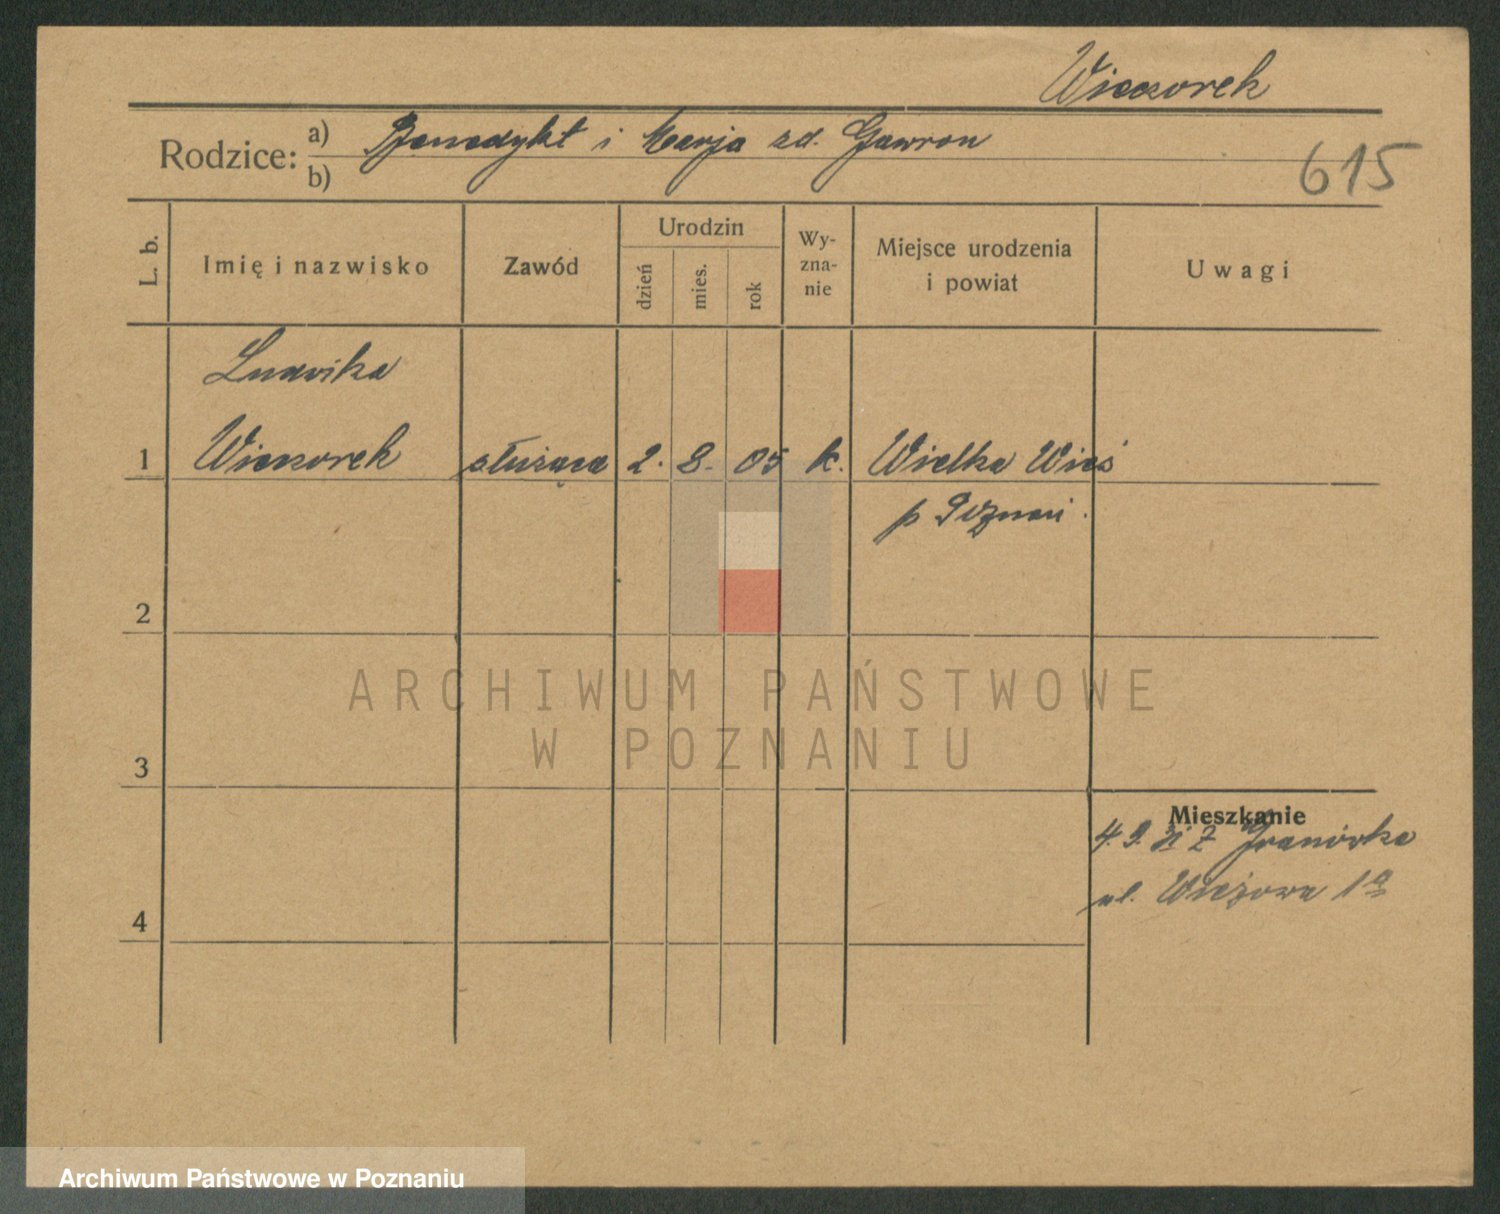 Wieczorek
Rodzice: a) Benedykt i Marja zd. Gawron
b)
615
L. b.
Imię i nazwisko
Zawód
Urodzin
dzień
mies.
rok
Wy-
zna-
nie
Miejsce urodzenia
i powiat
Uwagi
Ludwika
1 Wieczorek służąca 2. 8. 05 k. Wielka Wieś
p Poznań.
2
ARCHIWUM PAŃSTWOWE
W POZNANIU
3
Mieszkanie
4. 9. z
ul. Wieżowa 1a
4
Archiwum Państwowe w Poznaniu